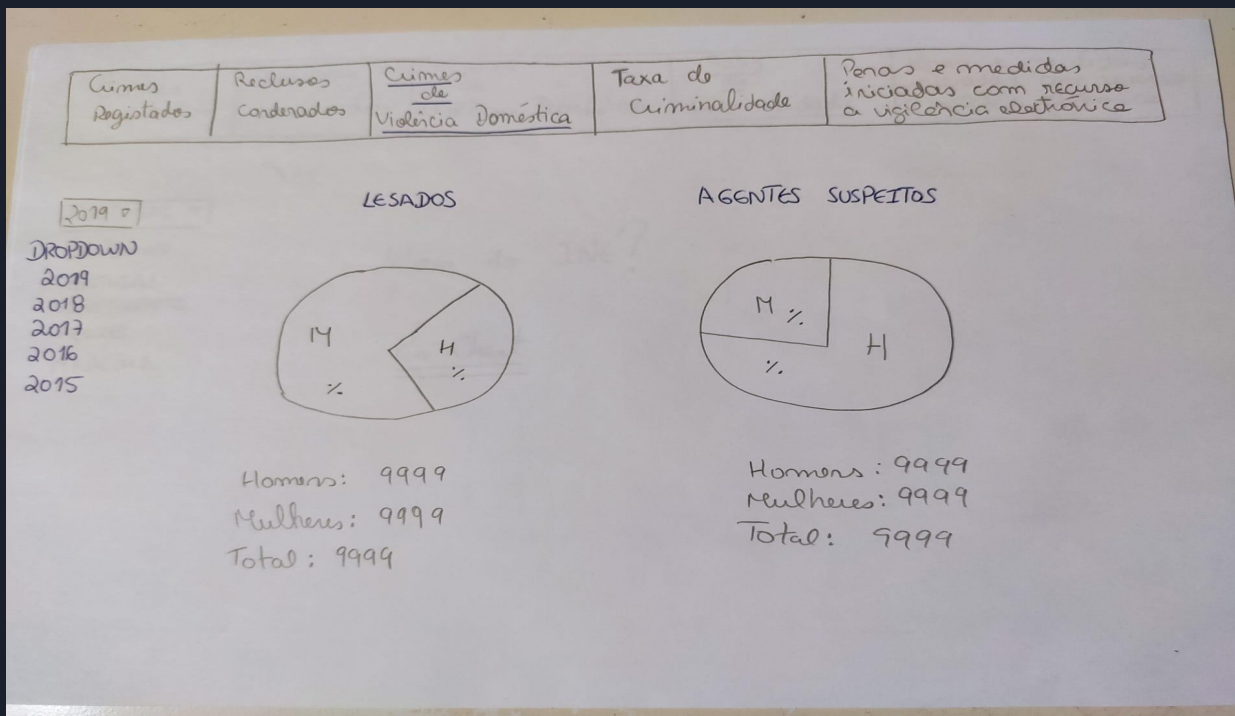 Crimes
Registados
Reclusos
Condenados
Crimes
de
Violência Doméstica
Taxa de
Criminalidade
Penas e medidas
iniciadas com recurso
a vigilância electrónica
2019
DROPDOWN
2019
2018
2017
2016
2015
LESADOS
M
%
H
%
Homens: 9999
Mulheres: 9999
Total: 9999
AGENTES SUSPEITOS
M %
H
%
Homens: 9999
Mulheres: 9999
Total: 9999